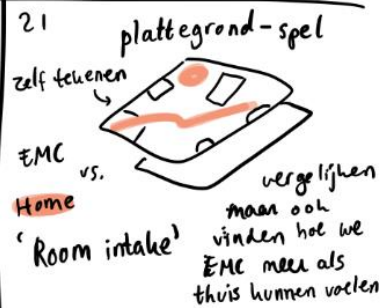 21
plattegrond-spel
zelf tekenen
EMC
vs.
Home
'Room intake'
vergelijken
maar ook
vinden hoe we
EMC meer als
thuis kunnen voelen